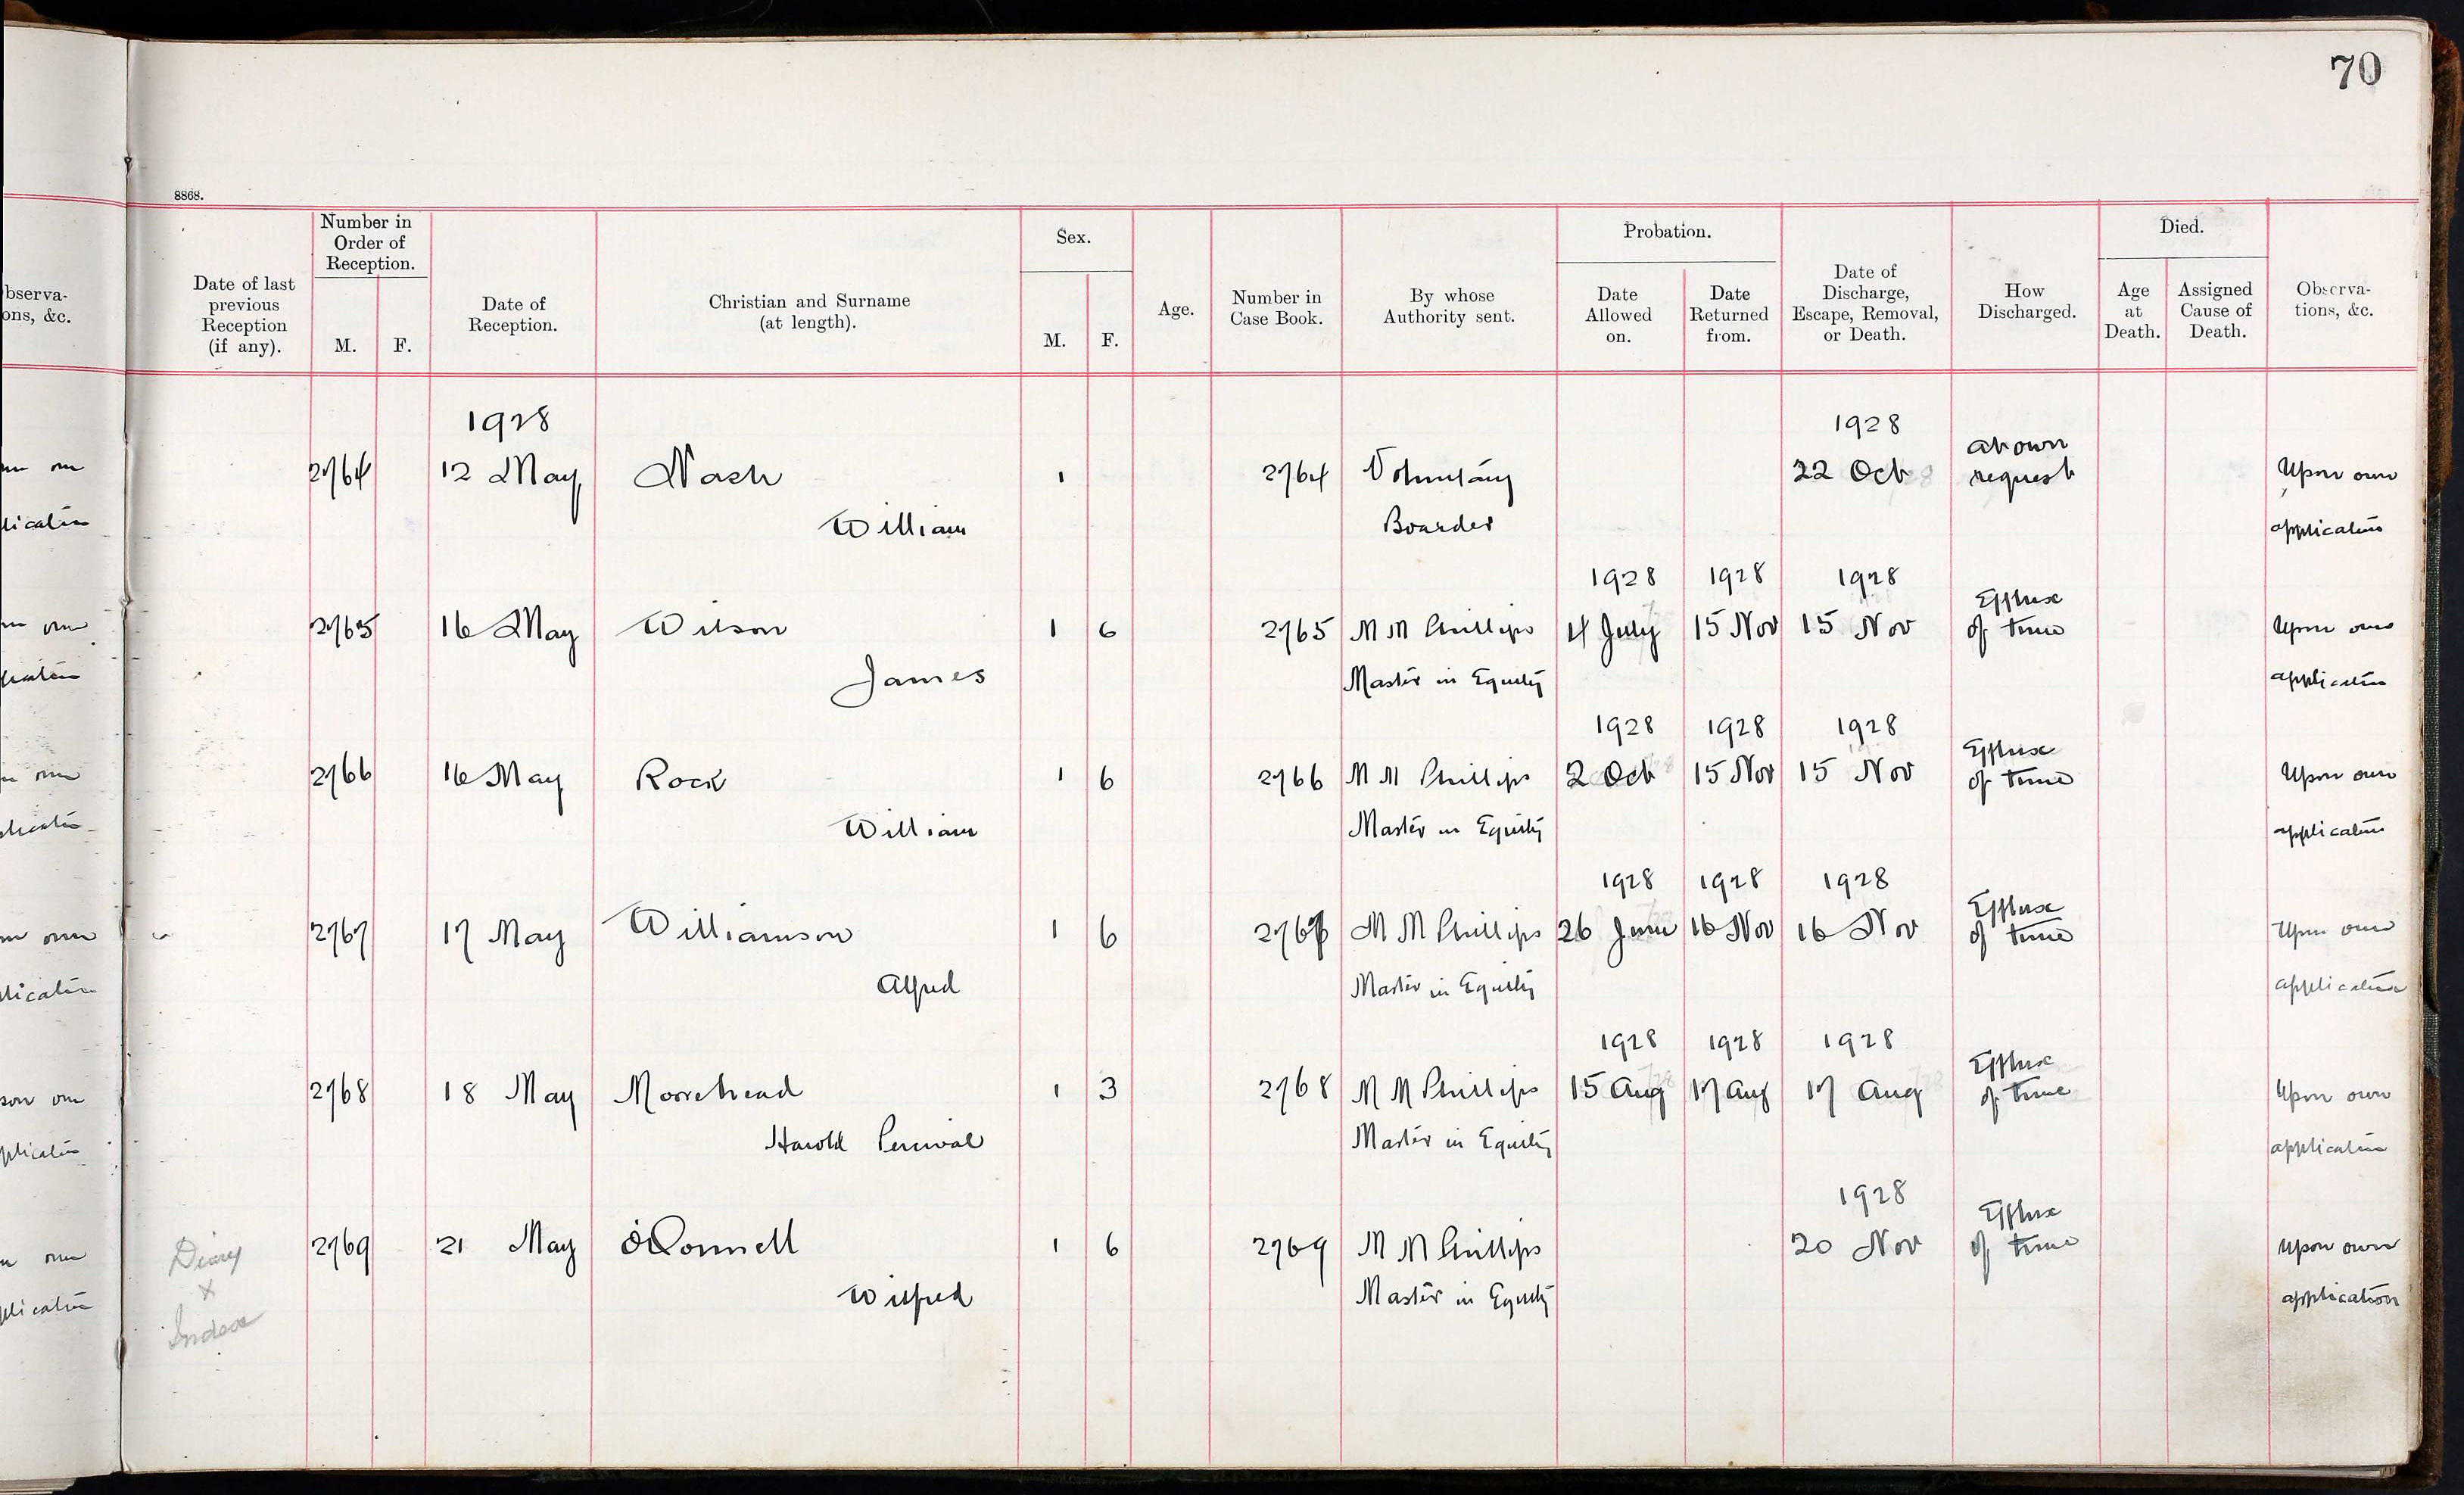 70
8868.
Observa-
ions, &c.
Date of last
previous
Reception
(if any).
Number in
Order of
Reception.
M. F.
Date of
Reception.
Christian and Surname
(at length).
Sex.
M. F.
Age.
Number in
Case Book.
By whose
Authority sent.
Probation.
Date
Allowed
on.
Date
Returned
from.
Date of
Discharge,
Escape, Removal,
or Death.
How
Discharged.
Died.
Age
at
Death.
Assigned
Cause of
Death.
Observa-
tions, &c.
1928 1928 at own
2764 12 May Nash 1 2764 Voluntary 22 Oct request Upon own
William Boarder application
1928 1928 1928 Efflux
2765 16 May Wilson 1 6 2765 M M Phillips 4 July 15 Nov 15 Nov of time Upon own
James Master in Equity application
1928 1928 1928 Efflux
2766 16 May Rock 1 6 2766 M M Phillips 2 Oct 15 Nov 15 Nov of time Upon own
William Master in Equity application
1928 1928 1928 Efflux
2767 17 May Williamson 1 6 2767 M M Phillips 26 June 16 Nov 16 Nov of time Upon own
Alfred Master in Equity application
1928 1928 1928 Efflux
2768 18 May Moorehead 1 3 2768 M M Phillips 15 Aug 17 Aug 17 Aug of time Upon own
Harold Percival Master in Equity application
1928 Efflux
Diary 2769 21 May O'Connell 1 6 2769 M M Phillips 20 Nov of time Upon own
+ Wilfred Master in Equity application
Index